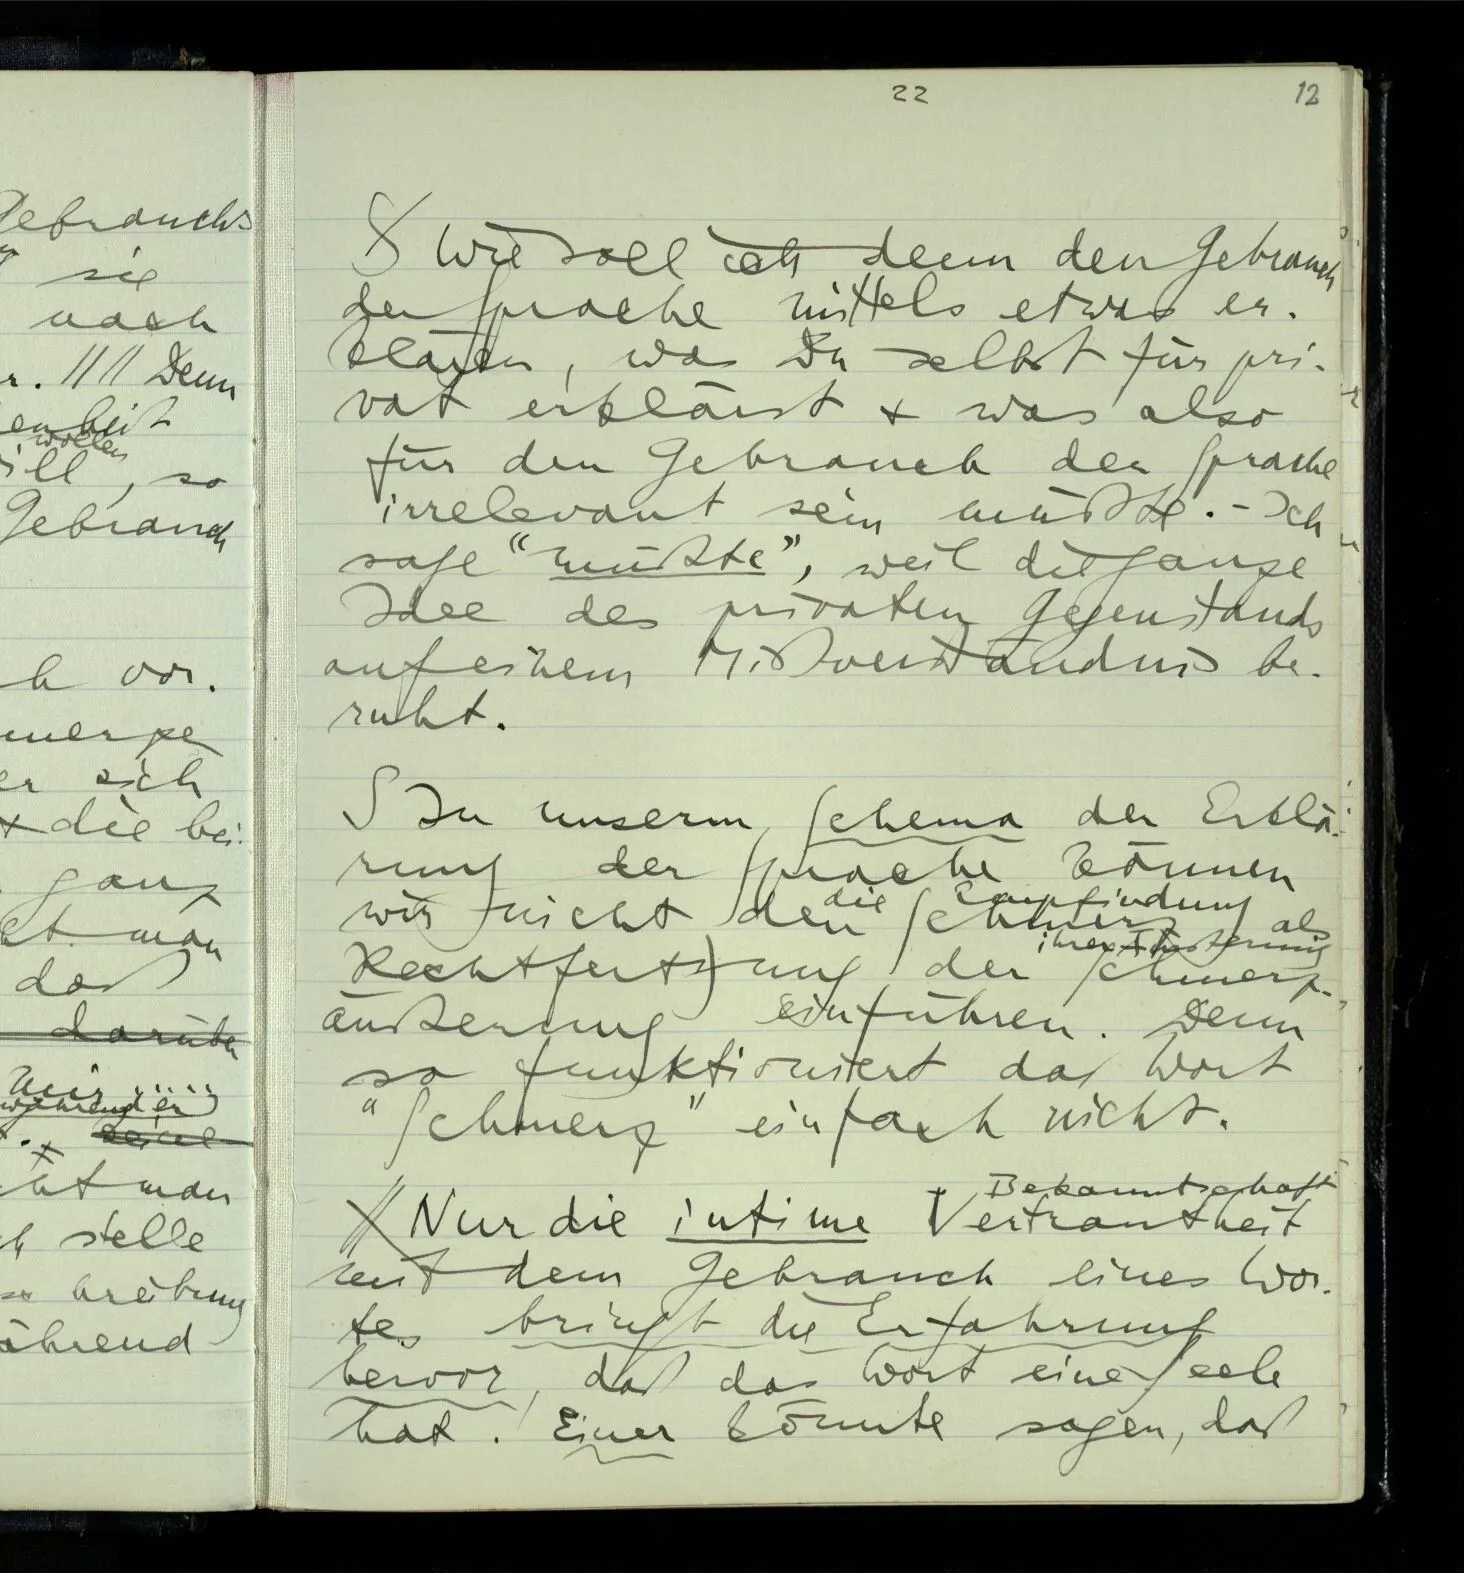 Gebrauchs
sie
nach
r. //// Denn
wollen
ill, so
Gebrauch
h vor.
er sich
& die bei-
ganz
man
daß
darüber
mir.....
während er
seine
man
stelle
ährend
22 12
∫ Wie soll ich denn den Gebrauch
der Sprache mittels etwas er-
klären, was Du selbst für pri-
vat erklärst & was also
für den Gebrauch der Sprache
irrelevant sein müßte. – Ich
sage “müßte”, weil die ganze
Idee des privaten Gegenstands
auf einem Mißverständnis be-
ruht.
∫ In unserm Schema der Erklä-
rung der Sprache können
die Empfindung
wir nicht den Schmerz als
ihrer Äußerung
Rechtfertigung der Schmerz-
äußerung einführen. Denn
so funktioniert das Wort
“Schmerz” einfach nicht.
Bekanntschaft
// Nur die intime Vertrautheit
mit dem Gebrauch eines Wor-
tes bringt die Erfahrung
hervor, daß das Wort eine Seele
hat. Einer könnte sagen, daß